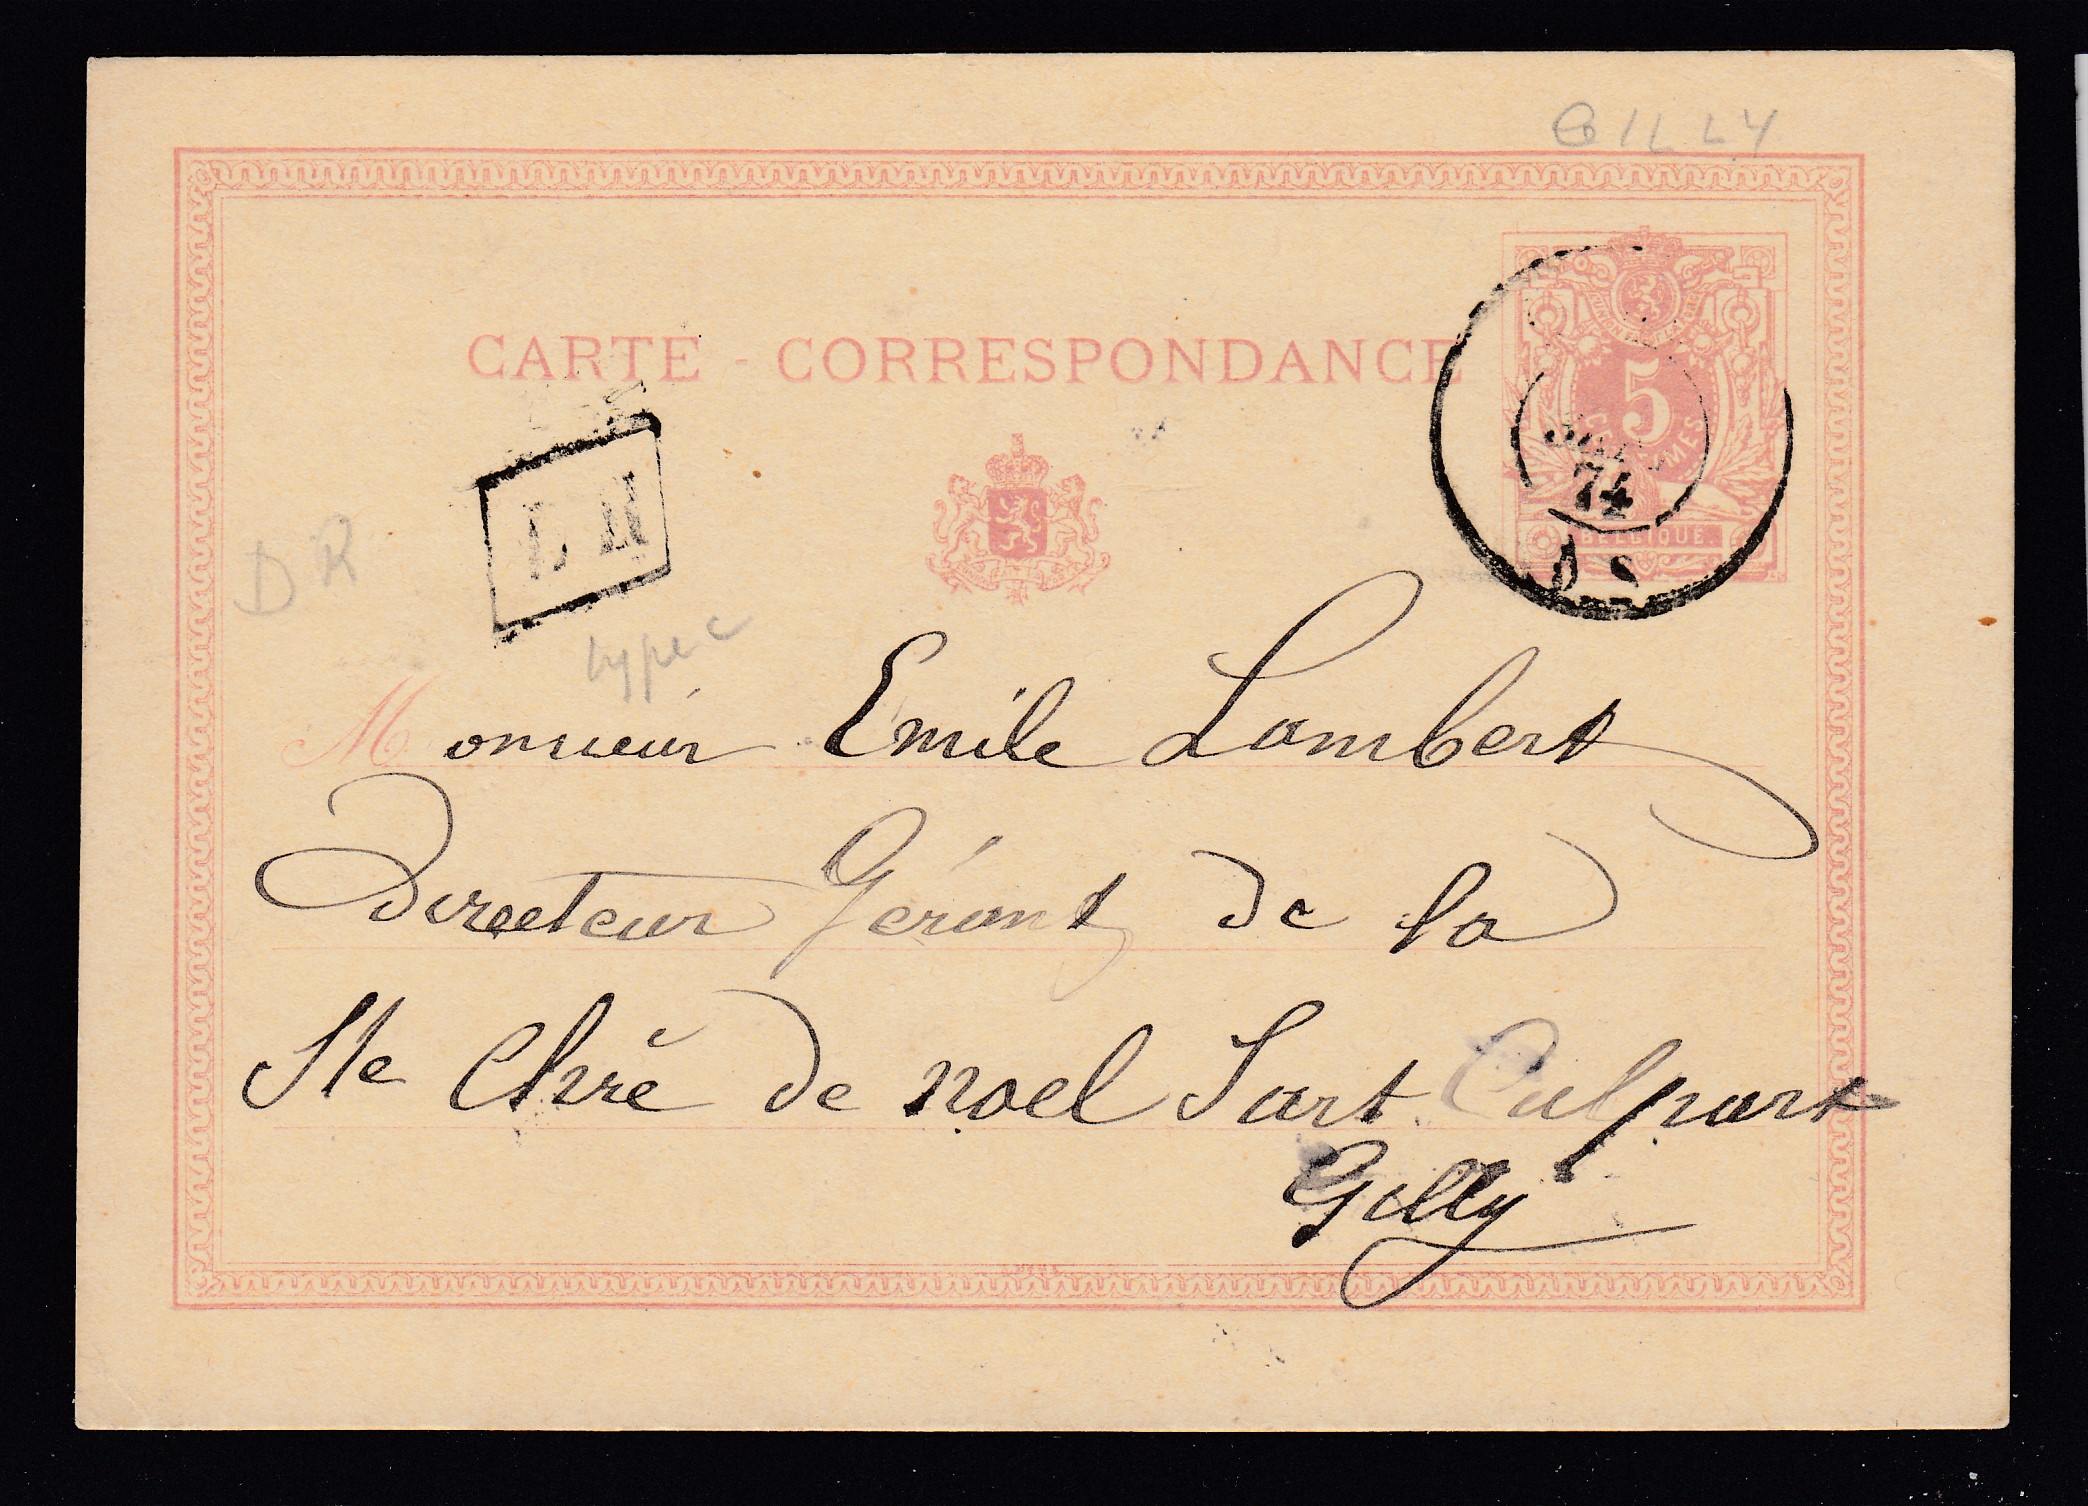 GILLY
UNION
CARTE - CORRESPONDANCE
5
CENTIMES
74
BELGIQUE.
DR
type c
Monsieur Emile Lambert
Directeur Gérant de la
Ste Chré de Noel Sart Culpart
Gilly